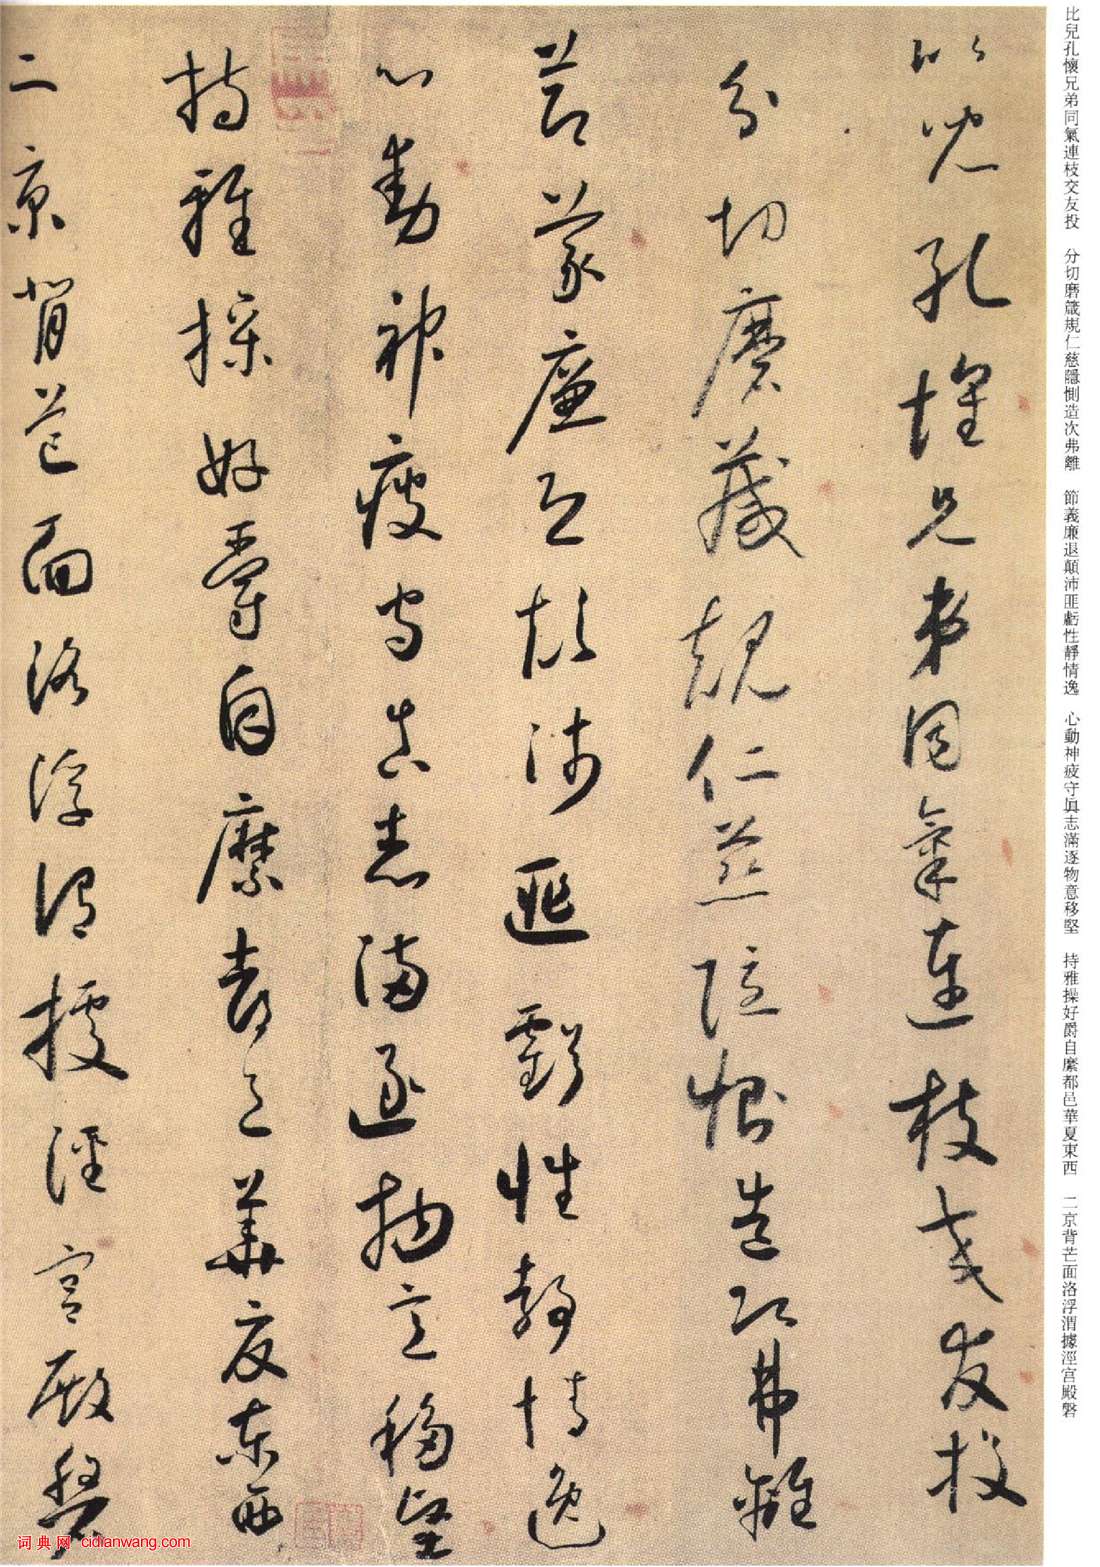 比兒孔懷兄弟同氣連枝交友投
分切磨箴規仁慈隱惻造次弗離
節義廉退顛沛匪虧性靜情逸
心動神疲守真志滿逐物意移堅
持雅操好爵自縻都邑華夏東西
二京背芒面洛浮渭據涇宮殿磐
比兒孔懷兄弟同氣連枝交友投 分切磨箴規仁慈隱惻造次弗離 節義廉退顛沛匪虧性靜情逸 心動神疲守眞志滿逐物意移堅 持雅操好爵自縻都邑華夏東西 二京背芒面洛浮渭據涇宮殿磐
词典网 cidianwang.com